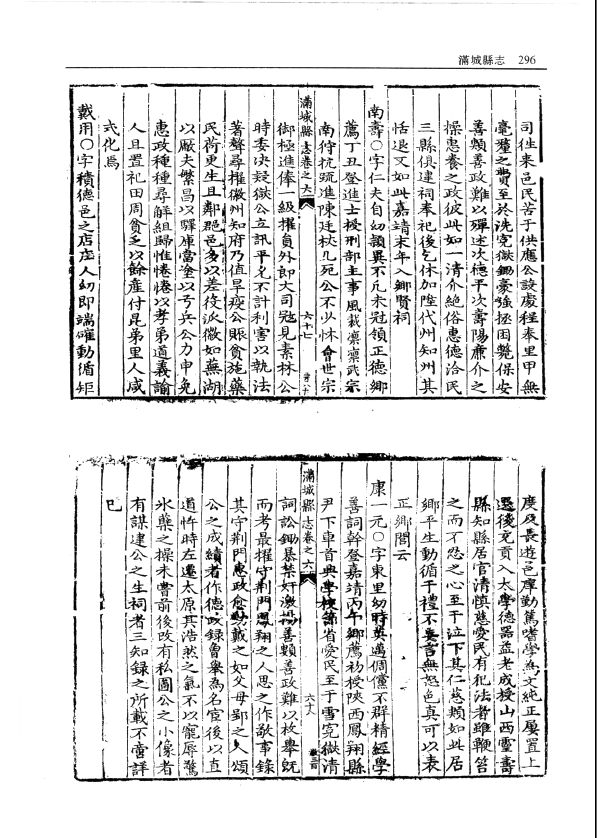 滿城縣志 296
司往来邑民苦于供應公設處程奉里甲無
毫釐之費至於洗冤獄鋤豪強拯困斃保安
善類善政難以殫述次德平次壽陽亷介之
操惠養之政彼此如一清介絕俗惠德洽民
三縣俱建祠奉祀後乞休加陞代州知州其
恬退又如此嘉靖末年入鄉賢祠
南壽○字仁夫自幼頴異不凡未冠領正德鄉
薦丁丑登進士授刑部主事風裁凛凛武宗
南狩抗疏進陳廷杖几死公不少怵會世宗
滿城縣志卷之六 六十七
御極進俸一級擢員外郎大司冦見素林公
時委决疑獄公立訊平允不計利害以執法
著聲尋擢徽州知府乃值旱疫公賑貧施藥
民荷更生且鄰郡邑多以差役派徵如蕪湖
以厰夫繁昌以驛庫當塗以弓兵公力申免
惠政種種尋解組歸惟惓惓以孝弟道義諭
人且置祀田周貧乏以餘產付昆弟里人咸
式化焉
戴用○字積德邑之店庄人幼即端確動循矩
度及長遊邑庠勤篤嗜學為文純正屢置上
選後充貢入太學德器益老成授山西靈壽
縣知縣居官清慎慈愛民有犯法者雖鞭笞
之而不忍之心至于泣下其仁慈類如此居
鄉平生動循于禮不妄言無怒色真可以表
正鄉閭云
康一元○字東里幼時英邁倜儻不群精經學
善詞幹登嘉靖丙午鄉薦初授陜西鳳翔縣
尹下車首興學校節省愛民至于雪冤獄清
滿城縣志卷之六 六十八
詞訟鋤暴禁奸激揚善類善政難以枚舉既
而考最擢守荆門鳳翔之人思之作敬事錄
其守荆門惠政愈動戴之如父母郢之人頌
公之成績者作德政録會舉為名宦後以直
道忤時左遷太原其浩然之氣不以寵辱驚
氷蘗之操未曹前後改有私圖公之小像者
有謀建公之生祠者三知録之所載不啻詳
已